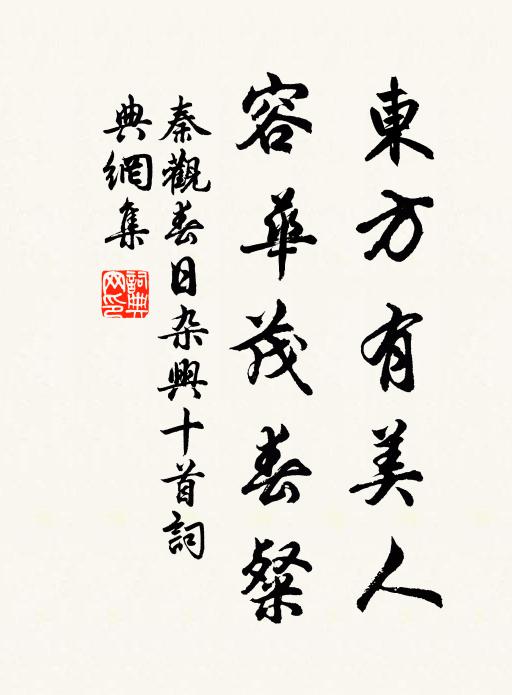 東方有美人
容華茂春粲
秦觀春日杂興十首詞
典網集
詞典
网印